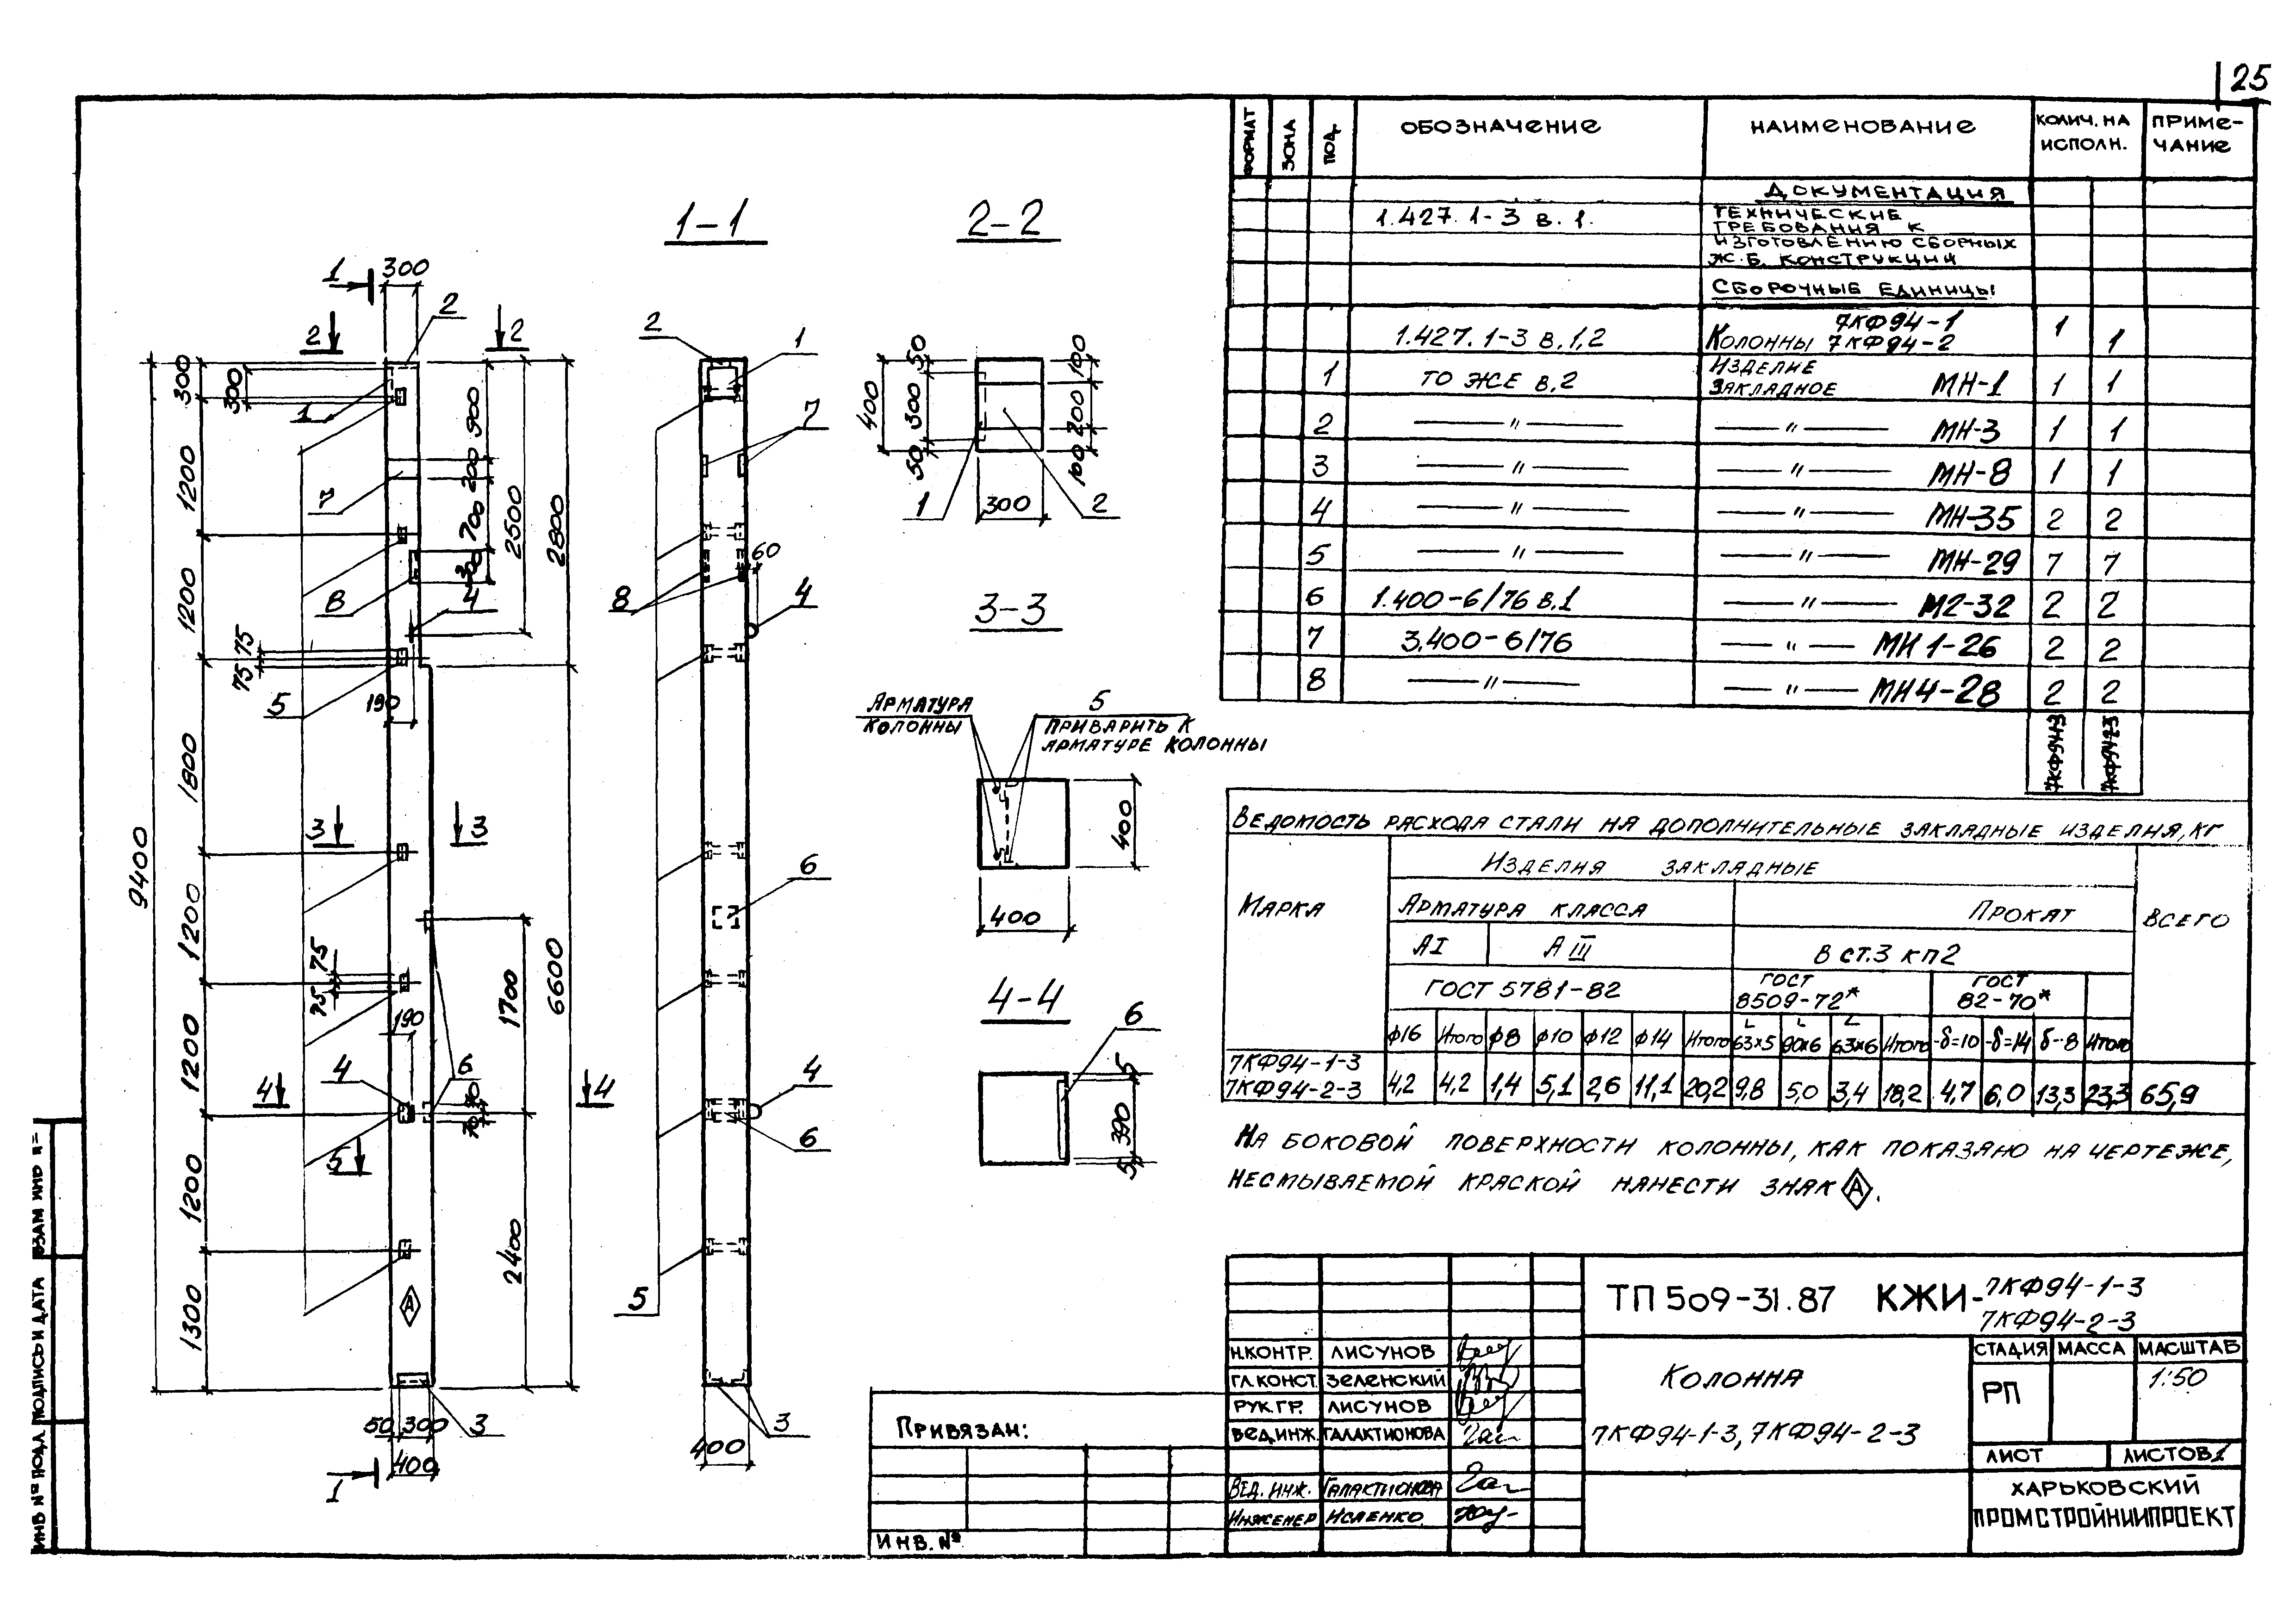 25
1-1
2-2
3-3
4-4
1
300
2
2
2
300
300
1
1200
7
1200
8
4
75
75
5
190
1800
3
3
9400
1200
75
75
190
4
4
4
6
1200
5
1200
1300
А
50
300
3
400
1
900
200
700
300
2500
2800
1700
6600
90
70
2400
2
1
7
60
8
4
6
4
6
5
3
400
400
50
300
50
100
200
100
1
300
2
Арматура
колонны
5
приварить к
арматуре колонны
400
400
6
5
390
5
ФОРМАТ
ЗОНА
ПОД.
ОБОЗНАЧЕНИЕ
НАИМЕНОВАНИЕ
КОЛИЧ. НА ИСПОЛН.
ПРИМЕ-ЧАНИЕ
ДОКУМЕНТАЦИЯ
1.427.1-3 в.1.
ТЕХНИЧЕСКИЕ
ТРЕБОВАНИЯ К
ИЗГОТОВЛЕНИЮ СБОРНЫХ
Ж.Б. КОНСТРУКЦИЙ
СБОРОЧНЫЕ ЕДИНИЦЫ
7КФ94-1
1.427.1-3 в.1,2 Колонны 7КФ94-2 1 1
1 ТО ЖЕ в.2 ИЗДЕЛИЕ ЗАКЛАДНОЕ МН-1 1 1
2 —〃— —〃— МН-3 1 1
3 —〃— —〃— МН-8 1 1
4 —〃— —〃— МН-35 2 2
5 —〃— —〃— МН-29 7 7
6 1.400-6/76 в.1 —〃— М2-32 2 2
7 3.400-6/76 —〃— МН 1-26 2 2
8 —〃— —〃— МН4-28 2 2
Ведомость расхода стали на дополнительные закладные изделия, кг
Марка
Изделия закладные
Всего
Арматура класса
Прокат
АI
АIII
В ст.3 кп2
ГОСТ 5781-82
ГОСТ 8509-72*
ГОСТ 82-70*
ф16 Итого ф8 ф10 ф12 ф14 Итого ∟63×5 ∟90×6 ∟63×6 Итого -δ=10 -δ=14 δ-8 Итого
7КФ94-1-3
7КФ94-2-3 4,2 4,2 1,4 5,1 2,6 11,1 20,2 9,8 5,0 3,4 18,2 4,7 6,0 13,3 23,3 65,9
На боковой поверхности колонны, как показано на чертеже,
несмываемой краской нанести знак А.
ТП 509-31.87 КЖИ-7КФ94-1-3
7КФ94-2-3
Н.КОНТР. ЛИСУНОВ
ГЛ.КОНСТ ЗЕЛЕНСКИЙ
РУК.ГР. ЛИСУНОВ
ВЕД.ИНЖ. ГАЛАКТИОНОВА
Вед. инж. Галактионова
Инженер Исленко
Колонна
7КФ94-1-3, 7КФ94-2-3
СТАДИЯ МАССА МАСШТАБ
РП 1:50
ЛИСТ ЛИСТОВ 1
ХАРЬКОВСКИЙ
ПРОМСТРОЙНИИПРОЕКТ
Привязан:
ИНВ. №
ВЗАМ ИНВ №
ПОДПИСЬ И ДАТА
ИНВ № ПОДЛ